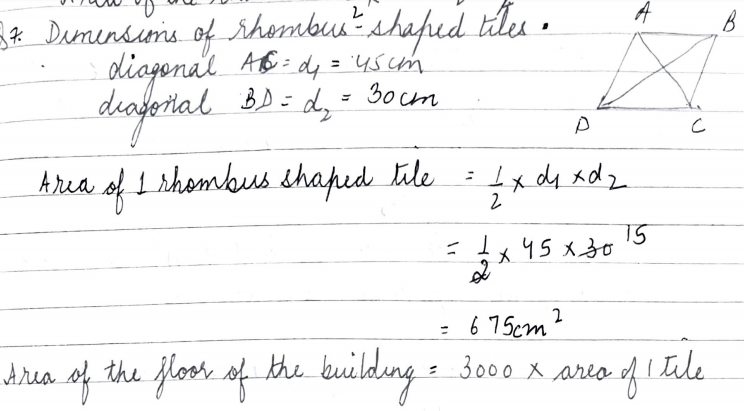 A B
Q7. Dimensions of rhombus-shaped tiles.
diagonal AC = d₁ = 45cm
diagonal BD = d₂ = 30cm
D C
Area of 1 rhombus shaped tile = 1/2 × d₁ × d₂
= 1/2 × 45 × 30 15
= 675cm²
Area of the floor of the building = 3000 × area of 1 tile